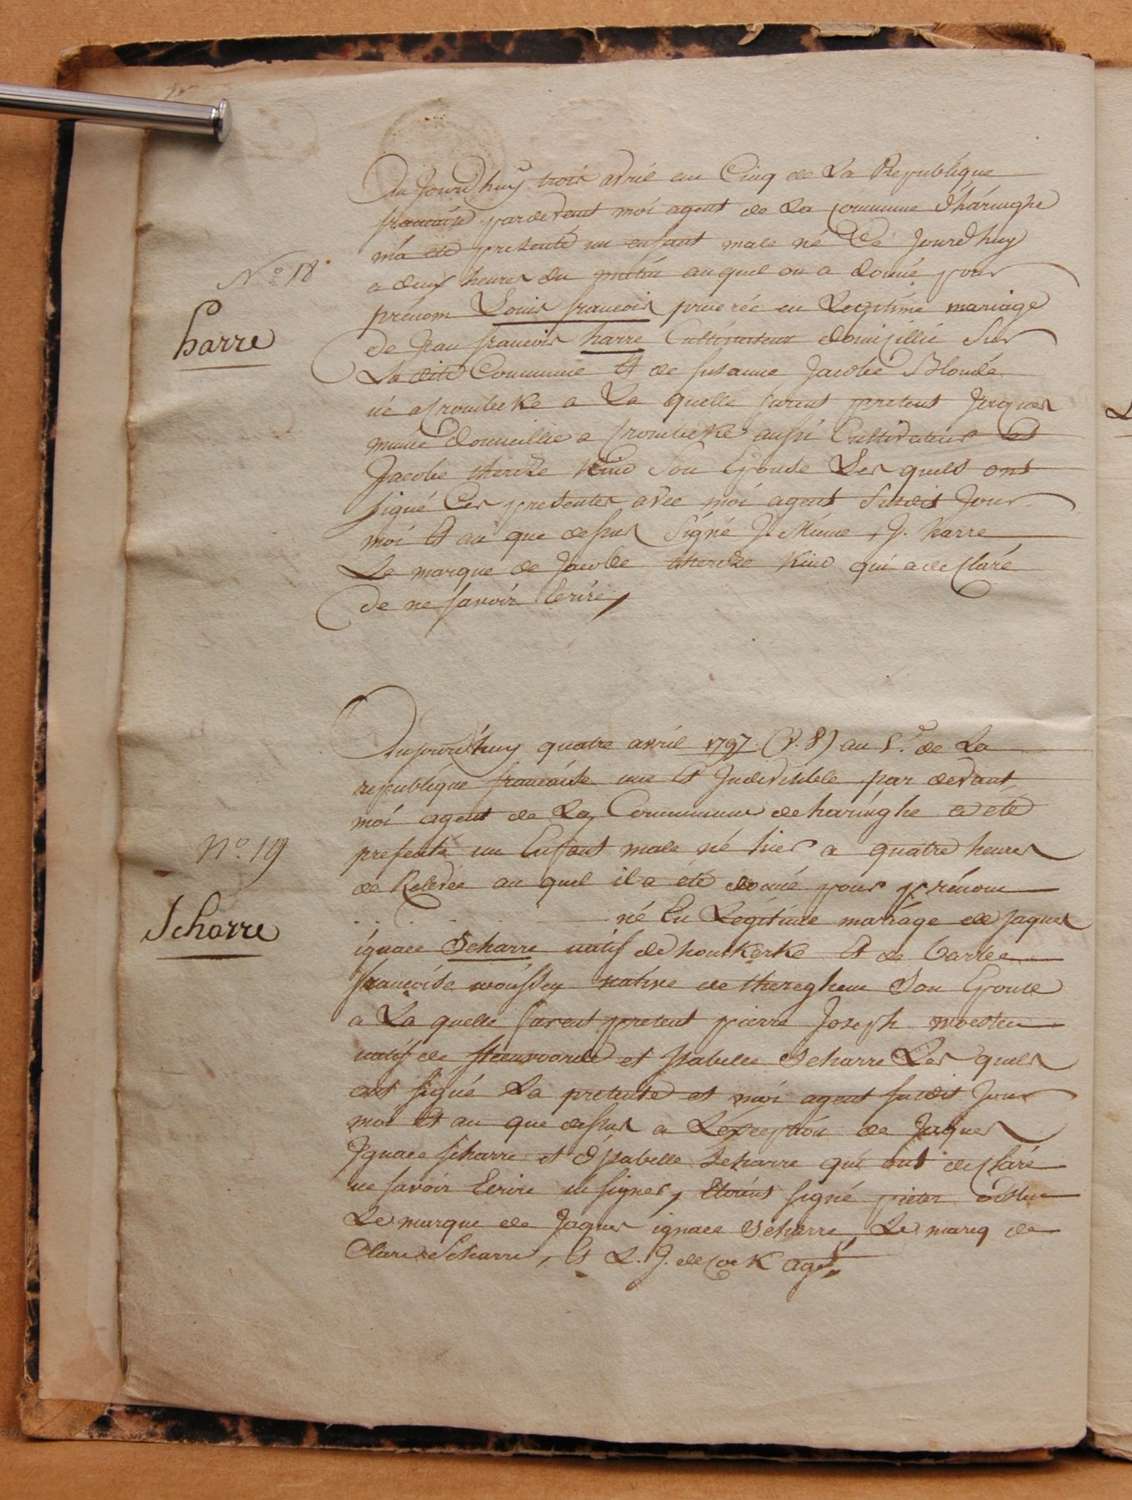 Au Jourd'huy trois avril an Cinq de La Republique
francaise pardevant moi agent de La commune d'haringhe
m'a ete presenté un enfant male né Ce Jourd'huy
a deux heures du matin auquel on a donné pour
prenom Louis francois procréé en Legitime mariage
N.o 18
harre
de Jean francois harre Cultivateur domicillié Sur
La dite Commune Et de susanne Jacobe Blondé
né a frombeke a La quelle furent present Jacques
domicillie a frombeke aussi Cultivateur et
Jacobe therese Kind Son Epouse Les quels ont
signé Ces presentes avec moi agent Susdit Jour
moi Et an que dessus Signé J. Mione, J. harre
Le marque de Jacobe therese Kind qui a declaré
de ne savoir Ecrire,
Aujourd'huy quatre avril 1797 (v.s) au 5.e de La
republique francaise une Et Indivisible par devant
moi agent de La Commune de haringhe a eté
presenté un Enfant male né hier a quatre heures
N.o 19
de Relevée au quel il a été donné pour prénom
Scharre
né En Legitime mariage de Jaques
ignace Scharre natif de houtkerke Et de
francoise native de Son Epouse
a La quelle furent present pierre Joseph
natif de steenvoorde et Isabelle Scharre Les quels
ont signé La presente et moi agent susdit Jour
moi Et an que dessus a L'exception de Jaques
Ignace Scharre et d'Isabelle Scharre qui ont declaré
ne savoir Ecrire ni signer, Etoient signé pieter
Le marque de Jaques ignace Scharre, Le marq de
Clare Scharre, Et L. J. de Cock agt